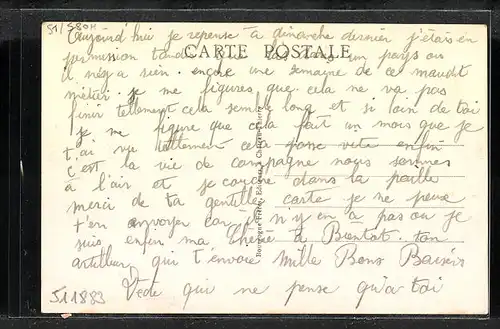 51/580H
Aujourd'hui je repense à dimanche dernier j'étais en
CARTE POSTALE
permission tandis que las dans un pays ou
il n'y a rien. encore une semagne de ce maudit
métier. je me figures que cela ne va pas
finir tellement cela semble long et si loin de toi
je me figure que cela fait un mois que je
t'ai vu tellement cela passe vite enfin
c'est la vie de campagne nous sommes
à l'air et je couche dans la paille
merci de ta gentilles carte je ne peux
t'en envoyer car il n'y en a pas ou je
suis enfin ma Cherie à Bientot. ton
artilleur qui t'envoie Mille Bons Baisers
Dede qui ne pense qu'a toi
511883